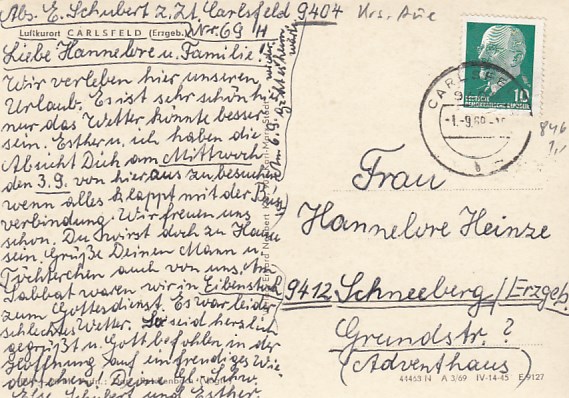 Abs. E. Schubert z. Zt. Carlsfeld 9404
Krs. Aue
Luftkurort CARLSFELD (Erzgeb.) Nr. 69 H
Liebe Hannelore u. Familie!
Wir verleben hier unseren
Urlaub. Es ist sehr schön hier
nur das Wetter könnte besser
sein. Esther u. ich haben die
Absicht Dich am Mittwoch
den 3.9. von hier aus zu besuchen
wenn alles klappt mit der Bus-
verbindung. Wir freuen uns
schon. Du wirst doch zu Hause
sein. Grüße Deinen Mann u.
Töchterchen auch von uns. Am
Sabbat waren wir in Eibenstock
zum Gottesdienst. Es war leider
schlechtes Wetter. So seid herzlich
gegrüßt u. Gott befohlen in der
Hoffnung auf ein freudiges Wie
dersehen Deine Gl. Schw.
Else Schubert und Esther
Am 6.9.
CARLSFELD
-1.-9.69
10
DEUTSCHE
DEMOKRATISCHE REPUBLIK
846
1,-
Frau
Hannelore Heinze
9412 Schneeberg/Erzgeb.
Grundstr. ?
(Adventhaus)
41463 N A 3/69 IV-14-45 E 9127